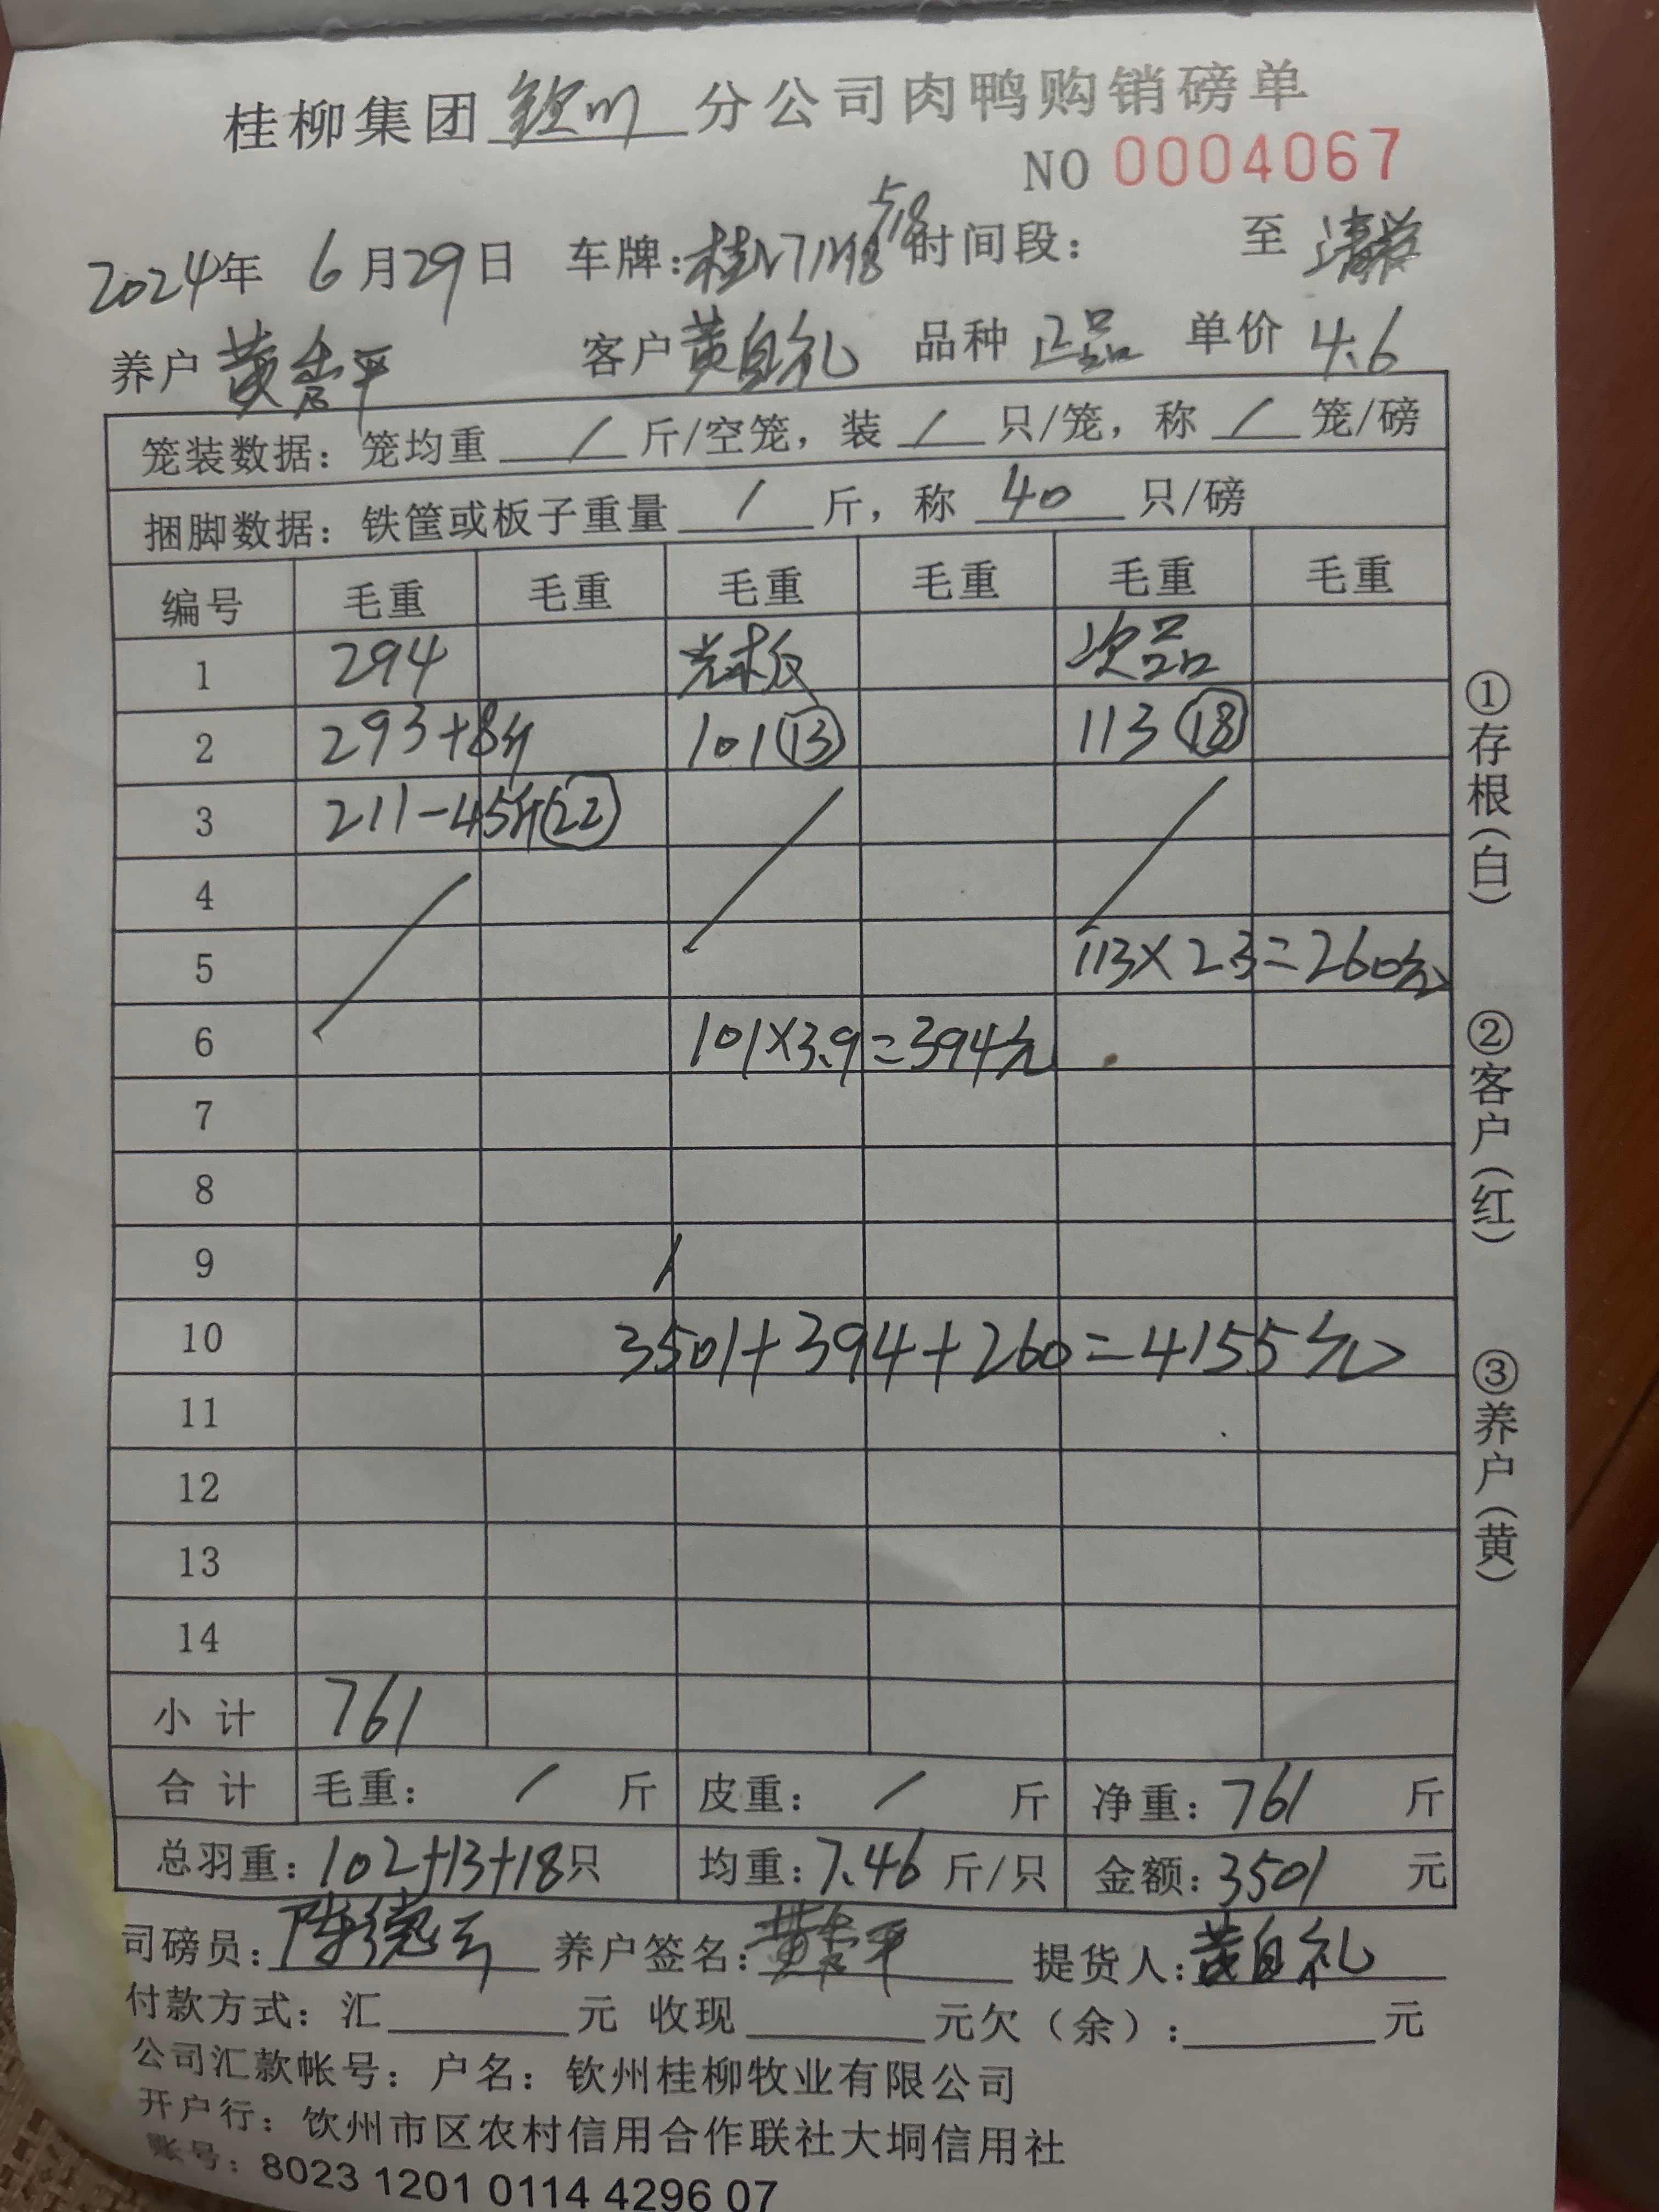 桂柳集团 钦州 分公司肉鸭购销磅单
NO 0004067
2024年 6月29日 车牌: 时间段: 至
养户 黄 平 客户 黄自礼 品种 正品 单价 4.6
笼装数据: 笼均重 / 斤/空笼, 装 / 只/笼, 称 / 笼/磅
捆脚数据: 铁筐或板子重量 / 斤, 称 40 只/磅
编号 毛重 毛重 毛重 毛重 毛重 毛重
1 294 光板 次品
2 293+8斤 101⑬ 113⑱
3 211-45斤㉒
4
5 113×2.3=260元
6 101×3.9=394元
7
8
9
10 3501+394+260=4155元
11
12
13
14
小计 761
合计 毛重: / 斤 皮重: / 斤 净重: 761 斤
总羽重: 102+13+18只 均重: 7.46 斤/只 金额: 3501 元
司磅员: 陈德云 养户签名: 黄 平 提货人: 黄自礼
付款方式: 汇 元 收现 元欠(余): 元
公司汇款帐号: 户名: 钦州桂柳牧业有限公司
开户行: 钦州市区农村信用合作联社大垌信用社
账号: 8023 1201 0114 4296 07
①存根(白)
②客户(红)
③养户(黄)